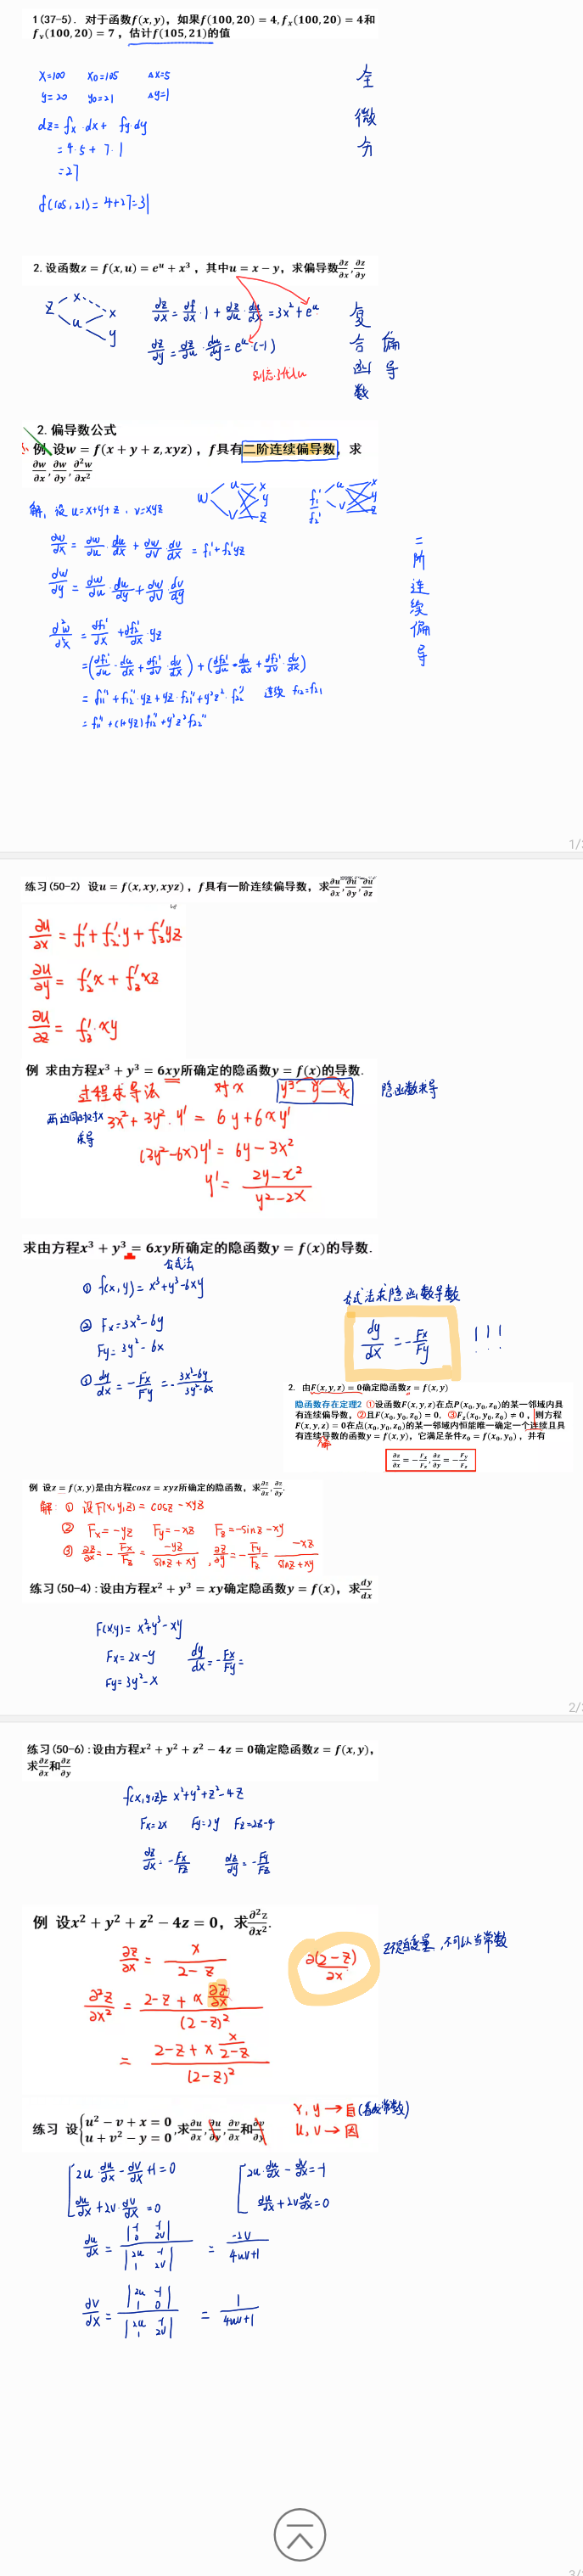 1(37-5). 对于函数f(x,y), 如果f(100,20) = 4, fₓ(100,20) = 4和
f_y(100,20) = 7, 估计f(105,21)的值
x=100 x₀=105 Δx=5
y=20 y₀=21 Δy=1
dz= fx·dx+ fy·dy
=4·5+7·1
=27
f(105,21)= 4+27=31
全微分
2. 设函数z = f(x,u) = eᵘ + x³, 其中u = x − y, 求偏导数∂z/∂x, ∂z/∂y
z x x
u y
dz/dx = df/dx·1 + dz/du·du/dx = 3x²+eᵘ
dz/dy = dz/du·du/dy = eᵘ·(-1)
别忘了代u
复合函数
偏导
2. 偏导数公式
例. 设w = f(x + y + z, xyz), f具有二阶连续偏导数, 求
∂w/∂x, ∂w/∂y, ∂²w/∂x²
解, 设 u=x+y+z, v=xyz
w u v x y z
f₁' f₂' u v x y z
dw/dx = dw/du·du/dx + dw/dv·dv/dx = f₁'+f₂'yz
dw/dy = dw/du·du/dy + dw/dv·dv/dy
d²w/d²x = df₁'/dx + df₂'/dx·yz
=(df₁'/du·du/dx + df₁'/dv·dv/dx) + (df₂'/du·du/dx + df₂'/dv·dv/dx)
= f₁₁''+f₁₂''·yz+yz·f₂₁''+y²z²·f₂₂'' 连续 f₁₂=f₂₁
= f₁₁''+(1+yz)f₁₂''+y²z²f₂₂''
二阶连续偏导
1/3
练习(50-2) 设u = f(x, xy, xyz), f具有一阶连续偏导数, 求∂u/∂x, ∂u/∂y, ∂u/∂z
∂u/∂x = f₁'+f₂'·y+f₃'yz
∂u/∂y = f₂'x+f₃'xz
∂u/∂z = f₃'·xy
例 求由方程x³ + y³ = 6xy所确定的隐函数y = f(x)的导数.
过程求导法 对x y³—y—x 隐函数求导
两边同时对x求导 3x²+3y²·y' = 6y+6xy'
(3y²-6x)y' = 6y-3x²
y' = (2y-x²)/(y²-2x)
求由方程x³ + y³ = 6xy所确定的隐函数y = f(x)的导数.
公式法
① f(x,y)= x³+y³-6xy
② Fx=3x²-6y
Fy=3y²-6x
③ dy/dx = -Fx/Fy = -(3x²-6y)/(3y²-6x)
公式法求隐函数导数
dy/dx = -Fx/Fy
2. 由F(x,y,z) = 0确定隐函数z = f(x,y)
隐函数存在定理2 ①设函数F(x,y,z)在点P(x₀,y₀,z₀)的某一邻域内具
有连续偏导数, ②且F(x₀,y₀,z₀) = 0, ③F_z(x₀,y₀,z₀) ≠ 0, 则方程
F(x,y,z) = 0在点(x₀,y₀,z₀)的某一邻域内恒能唯一确定一个连续且具
有连续导数的函数y = f(x,y), 它满足条件z₀ = f(x₀,y₀), 并有
∂z/∂x = −Fx/Fz, ∂z/∂y = −Fy/Fz
例 设z = f(x,y)是由方程cosz = xyz所确定的隐函数, 求∂z/∂x, ∂z/∂y.
解: ① 设F(x,y,z)= cosz-xyz
② Fx=-yz Fy=-xz Fz=-sinz-xy
③ ∂z/∂x = -Fx/Fz = -yz/(sinz+xy), ∂z/∂y = -Fy/Fz = -xz/(sinz+xy)
练习(50-4): 设由方程x² + y³ = xy确定隐函数y = f(x), 求dy/dx
F(x,y)= x²+y³-xy
Fx=2x-y dy/dx = -Fx/Fy =
Fy=3y²-x
2/3
练习(50-6): 设由方程x² + y² + z² − 4z = 0确定隐函数z = f(x,y),
求∂z/∂x和∂z/∂y
f(x,y,z)= x²+y²+z²-4z
Fx=2x Fy=2y Fz=2z-4
dz/dx = -Fx/Fz dz/dy = -Fy/Fz
例 设x² + y² + z² − 4z = 0, 求∂²z/∂x².
∂z/∂x = x/(2-z)
∂(2-z)/∂x
不可以当常数
∂²z/∂x² = (2-z+x ∂z/∂x)/(2-z)²
= (2-z+x x/(2-z))/(2-z)²
练习 设{u² − v + x = 0, u + v² − y = 0, 求∂u/∂x, ∂u/∂y, ∂v/∂x和∂v/∂y
x,y→自(看成常数)
u,v→因
2u·du/dx - dv/dx +1=0 2u·du/dx - dv/dx = -1
du/dx+2v·dv/dx =0 du/dx+2v dv/dx=0
du/dx = |-1 -1; 0 2v| / |2u -1; 1 2v| = -2v/(4uv+1)
dv/dx = |2u -1; 1 0| / |2u -1; 1 2v| = 1/(4uv+1)
3/3